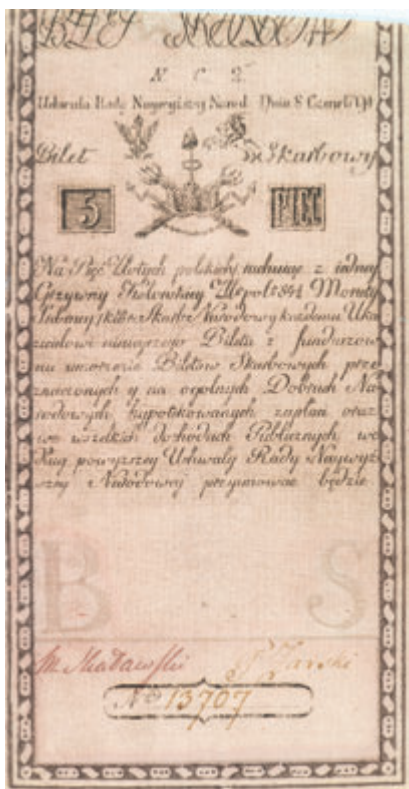 N C 2.
Uchwała Rady Naywyższey Narod. Dnia 8 Czerw. 1794
Bilet Skarbowy
5 PIĘC
Na Pięć Złotych polskich, rachuiąc z iedney
Grzywny Kolońskiey Zł. pol: 84½ Monety
Srebrney, któré Skarb Narodowy każdemu Uka-
zicielowi ninieyszego Biletu z funduszow
na umorzenie Biletow Skarbowych prze-
znaczonych y na ogolnych Dobrach Na-
rodowych hypotekowanych zapłaci oraz
we wszelkich dochodach Publicznych we-
dług powyższey Uchwały Rady Naywyż-
szey Narodowey przyimować będzie
B S
No 13707